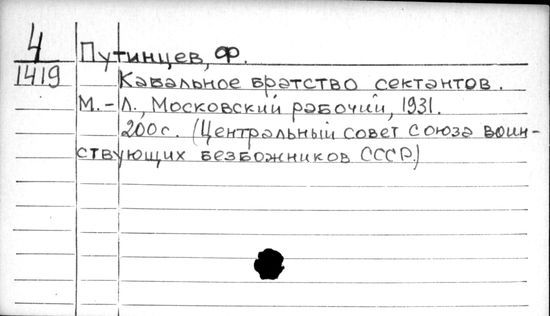 4
1419
Путинцев, Ф.
Кабальное братство сектантов.
М.-Л., Московский рабочий, 1931.
200с. (Центральный совет союза воин-
ствующих безбожников СССР.)